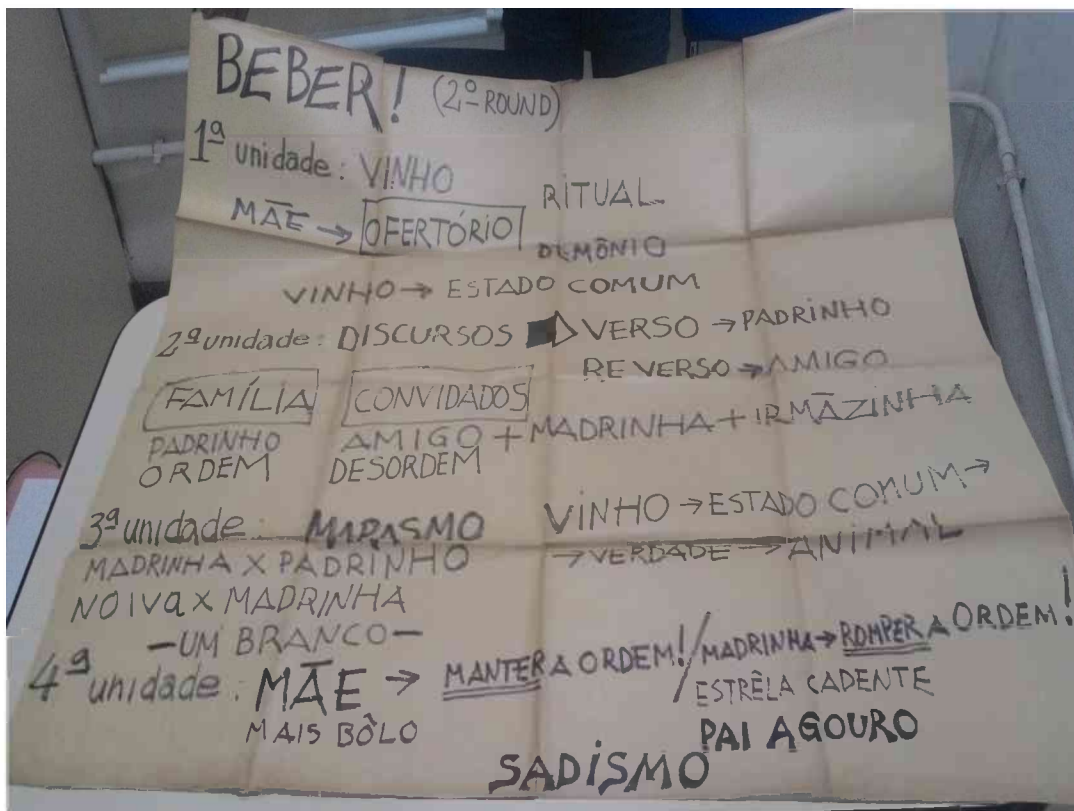 BEBER! (2º ROUND)
1ª unidade: VINHO
RITUAL
MÃE → OFERTÓRIO
DEMÔNIO
VINHO → ESTADO COMUM
2ª unidade: DISCURSOS ▷ VERSO → PADRINHO
REVERSO → AMIGO
FAMÍLIA CONVIDADOS
PADRINHO AMIGO + MADRINHA + IRMÃZINHA
ORDEM DESORDEM
3ª unidade: MARASMO VINHO → ESTADO COMUM →
→ VERDADE → ANIMAL
MADRINHA X PADRINHO
NOIVa X MADRINHA
—UM BRANCO—
4ª unidade: MÃE → MANTER A ORDEM! / MADRINHA → ROMPER A ORDEM!
MAIS BÔLO ESTRÊLA CADENTE
PAI AGOURO
SADISMO